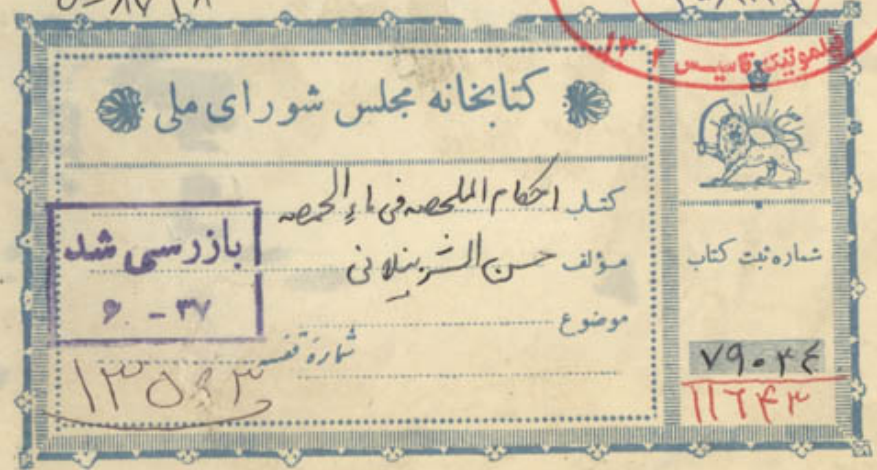 کتابخانه مجلس شورای ملی
کتاب احکام الملخصه فی ماء الحمصه
مؤلف حسن الشرنبلانی
موضوع
شمارهٔ قفسه
۱۳۵۹۳
بازرسی شد
۶ - ۳۷
شماره ثبت کتاب
۷۹۰۲۴
۱۱۶۴۳
۱۳۰۲